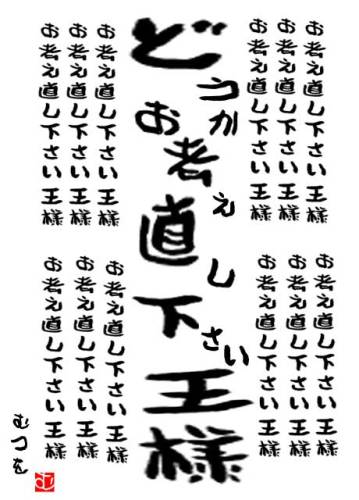 お考え直し下さい王様
お考え直し下さい王様
お考え直し下さい王様
お考え直し下さい王様
お考え直し下さい王様
お考え直し下さい王様
どうかお考え直し下さい王様
お考え直し下さい王様
お考え直し下さい王様
お考え直し下さい王様
お考え直し下さい王様
お考え直し下さい王様
お考え直し下さい王様
むつを
む